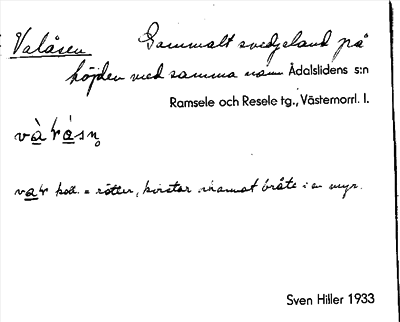 Valåsen Gammalt svedjeland på
höjden med samma namn Ådalslidens s:n
Ramsele och Resele tg., Västernorrl. l.
và ɽ ásn̥
vaɽ koll. = rötter, kvistar o. annat bråte i en myr.
Sven Hiller 1933